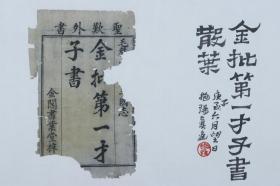 聖歎外書
金批第一才
子書
金閶書業堂梓
金批第一才子書
散葉
庚子六月望日